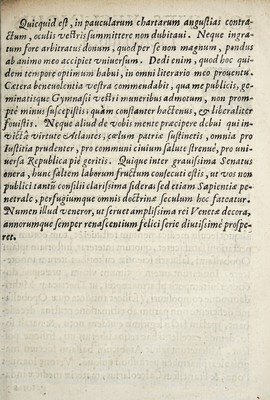 Quicquid est, in paucularum chartarum angustias contra-
ctum, oculis vestris summittere non dubitaui. Neque ingra-
tum fore arbitratus donum, quod per se non magnum, pondus
ab animo meo accipiet vniuersum. Dedi enim, quod hoc qui-
dem tempore optimum habui, in omni literario meo prouentu.
Cætera beneuolentia vestra commendabit, qua me publicis, ge-
minatisque Gymnasii vestri muneribus admotum, non prom-
ptè minus suscepistis: quàm constanter hactenus, ac liberaliter
fouistis. Neque aliud de vobis mente præcipere debui qui in-
victâ virtute Atlantes, cælum patriæ sustinetis, omnia pro
Iustitia prudenter, pro communi ciuium salute strenuè, pro uni-
uersa Republica piè geritis. Quique inter grauissima Senatus
onera, hunc saltem laborum fructum consecuti estis, ut vos non
publici tantũ consilii clarissima sidera: sed etiam Sapientiæ pe-
netrale, perfugiumque omnis doctrinæ seculum hoc fateatur.
Numen illud veneror, ut seruet amplissima rei Venetæ decora,
annorumque semper renascentium felici serie diutissimè prospe-
ret.